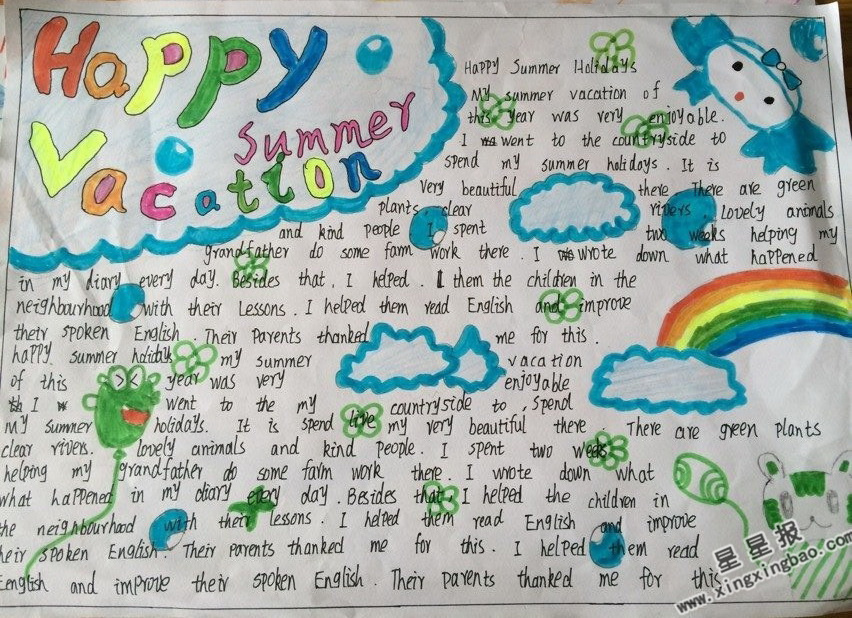 Happy
Summer
Vacation
HAPPY Summer Holidays
My summer vacation of
this year was very enjoyable.
I went to the countryside to
spend my summer holidays. It is
very beautiful there There are green
plants, clear rivers. Lovely animals
and kind people I spent two weeks helping my
grandfather do some farm work there. I wrote down what happened
in my diary every day. Besides that, I helped. I them the children in the
neighbourhood with their Lessons. I helped them read English and improve
their spoken English. Their Parents thanked me for this.
happy summer holidays my summer vacation
of this year was very enjoyable
I went to the my countryside to spend
my summer holidays. It is spend live my very beautiful there. There are green plants
clear rivers. lovely animals and kind people. I spent two weeks
helping my grandfather do some farm work there. I wrote down what
what happened in my diary every day. Besides that, I helped the children in
the neighbourhood with their lessons. I helped them read English and improve
heir spoken English. Their parents thanked me for this. I helped them read
English and improve their spoken English. Their parents thanked me for this
星星报
www.xingxingbao.com